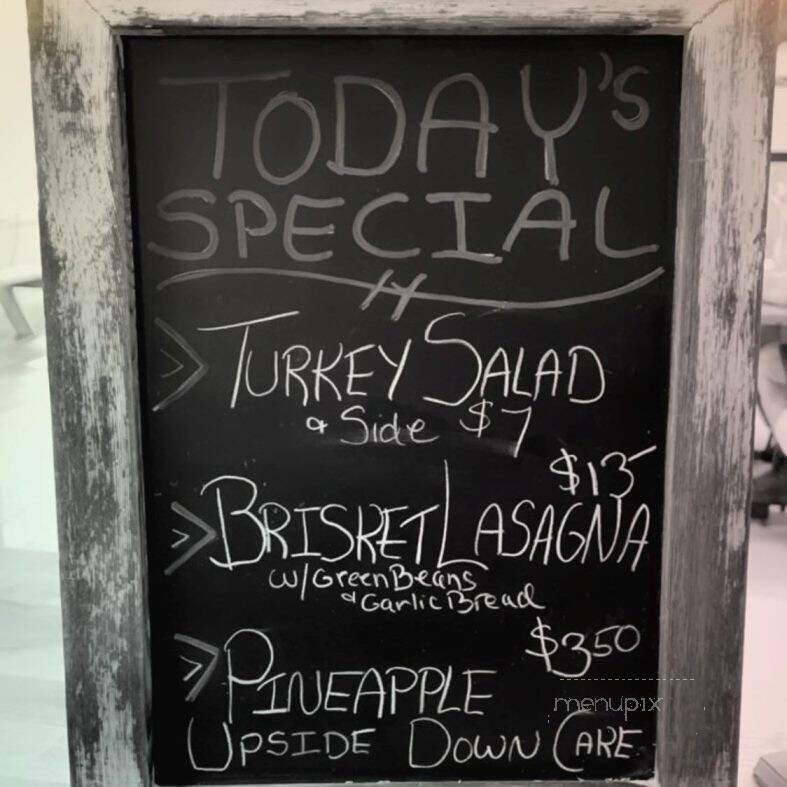 TODAY'S
SPECIAL
TURKEY SALAD
& Side $7
$13
BRISKET LASAGNA
w/ Green Beans
& Garlic Bread
$3.50
PINEAPPLE
UPSIDE DOWN CAKE
menupix